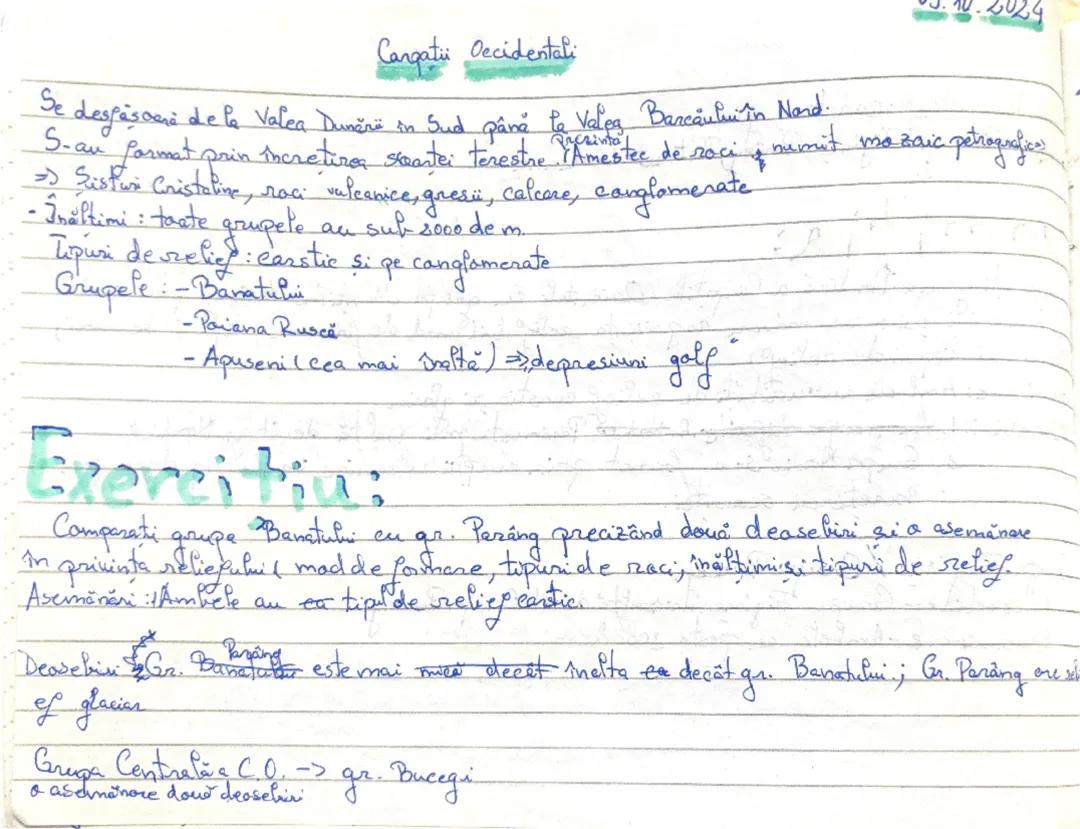 10.2024
Carpații Occidentali
Se desfășoară de la Valea Dunării în Sud până la Valea Barcăului în Nord.
S-au format prin încrețirea scoarței terestre. Prezintă Amestec de roci, numit mozaic petrografic
=> Șisturi Cristaline, roci vulcanice, gresii, calcare, conglomerate
- Înălțimi : toate grupele au sub 2000 de m.
Tipuri de relief : carstic și pe conglomerate
Grupele : - Banatului
- Poiana Ruscă
- Apuseni (cea mai înaltă) => depresiuni golf"
Exercițiu:
Comparați grupa Banatului cu gr. Parâng precizând două deosebiri și o asemănare
în privința reliefului ( mod de formare, tipuri de roci, înălțimi și tipuri de relief.
Asemănări : Ambele au tipul de relief carstic.
Deosebiri : Gr. Parâng este mai înalta decât gr. Banatului.; Gr. Parâng are reli
ef glaciar
Grupa Centrală a C.O. -> gr. Bucegi
o asemănare două deosebiri